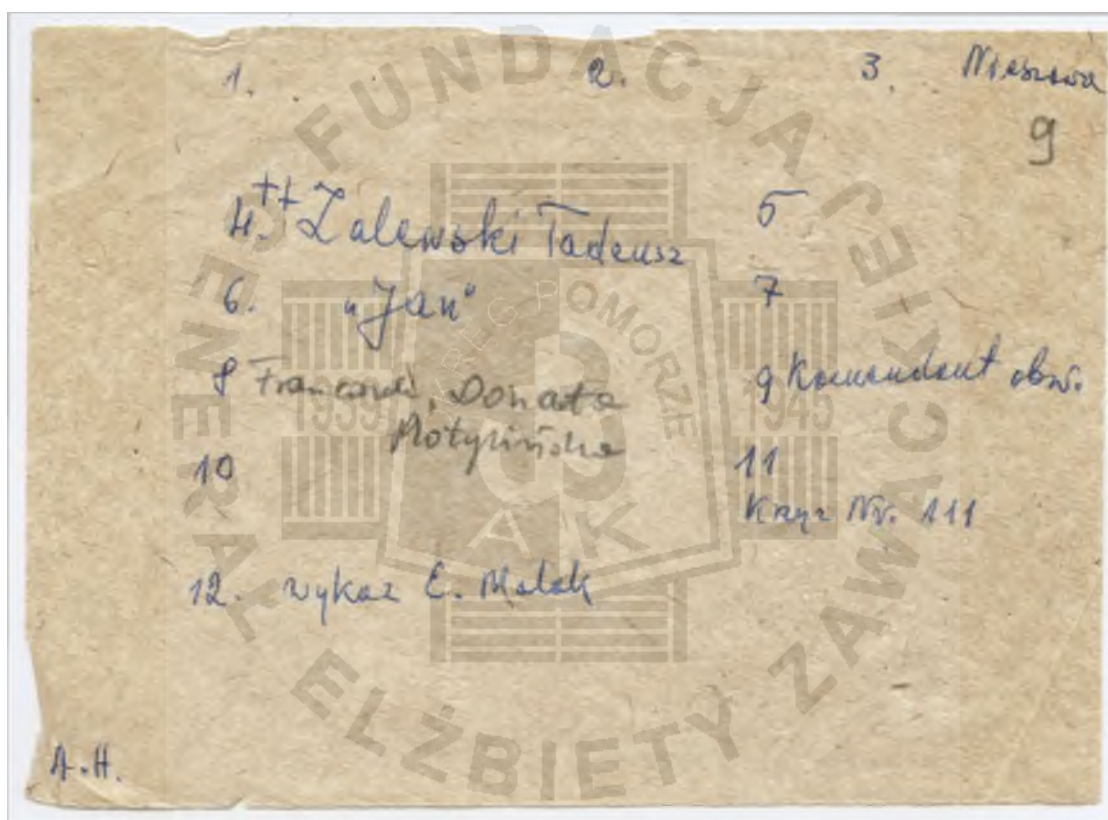 1. 2. 3. Nieszawa
9
4. ++ Zalewski Tadeusz 5
6. "Jan" 7
8 Donata 9 Komendant obw.
Motylińska
10 11
Krzyż Nr. 111
12. wykaz E. Malak
A.H.
FUNDACJA GENERAŁ ELŻBIETY ZAWACKIEJ
OKRĘG POMORZE
1939 1945
AK